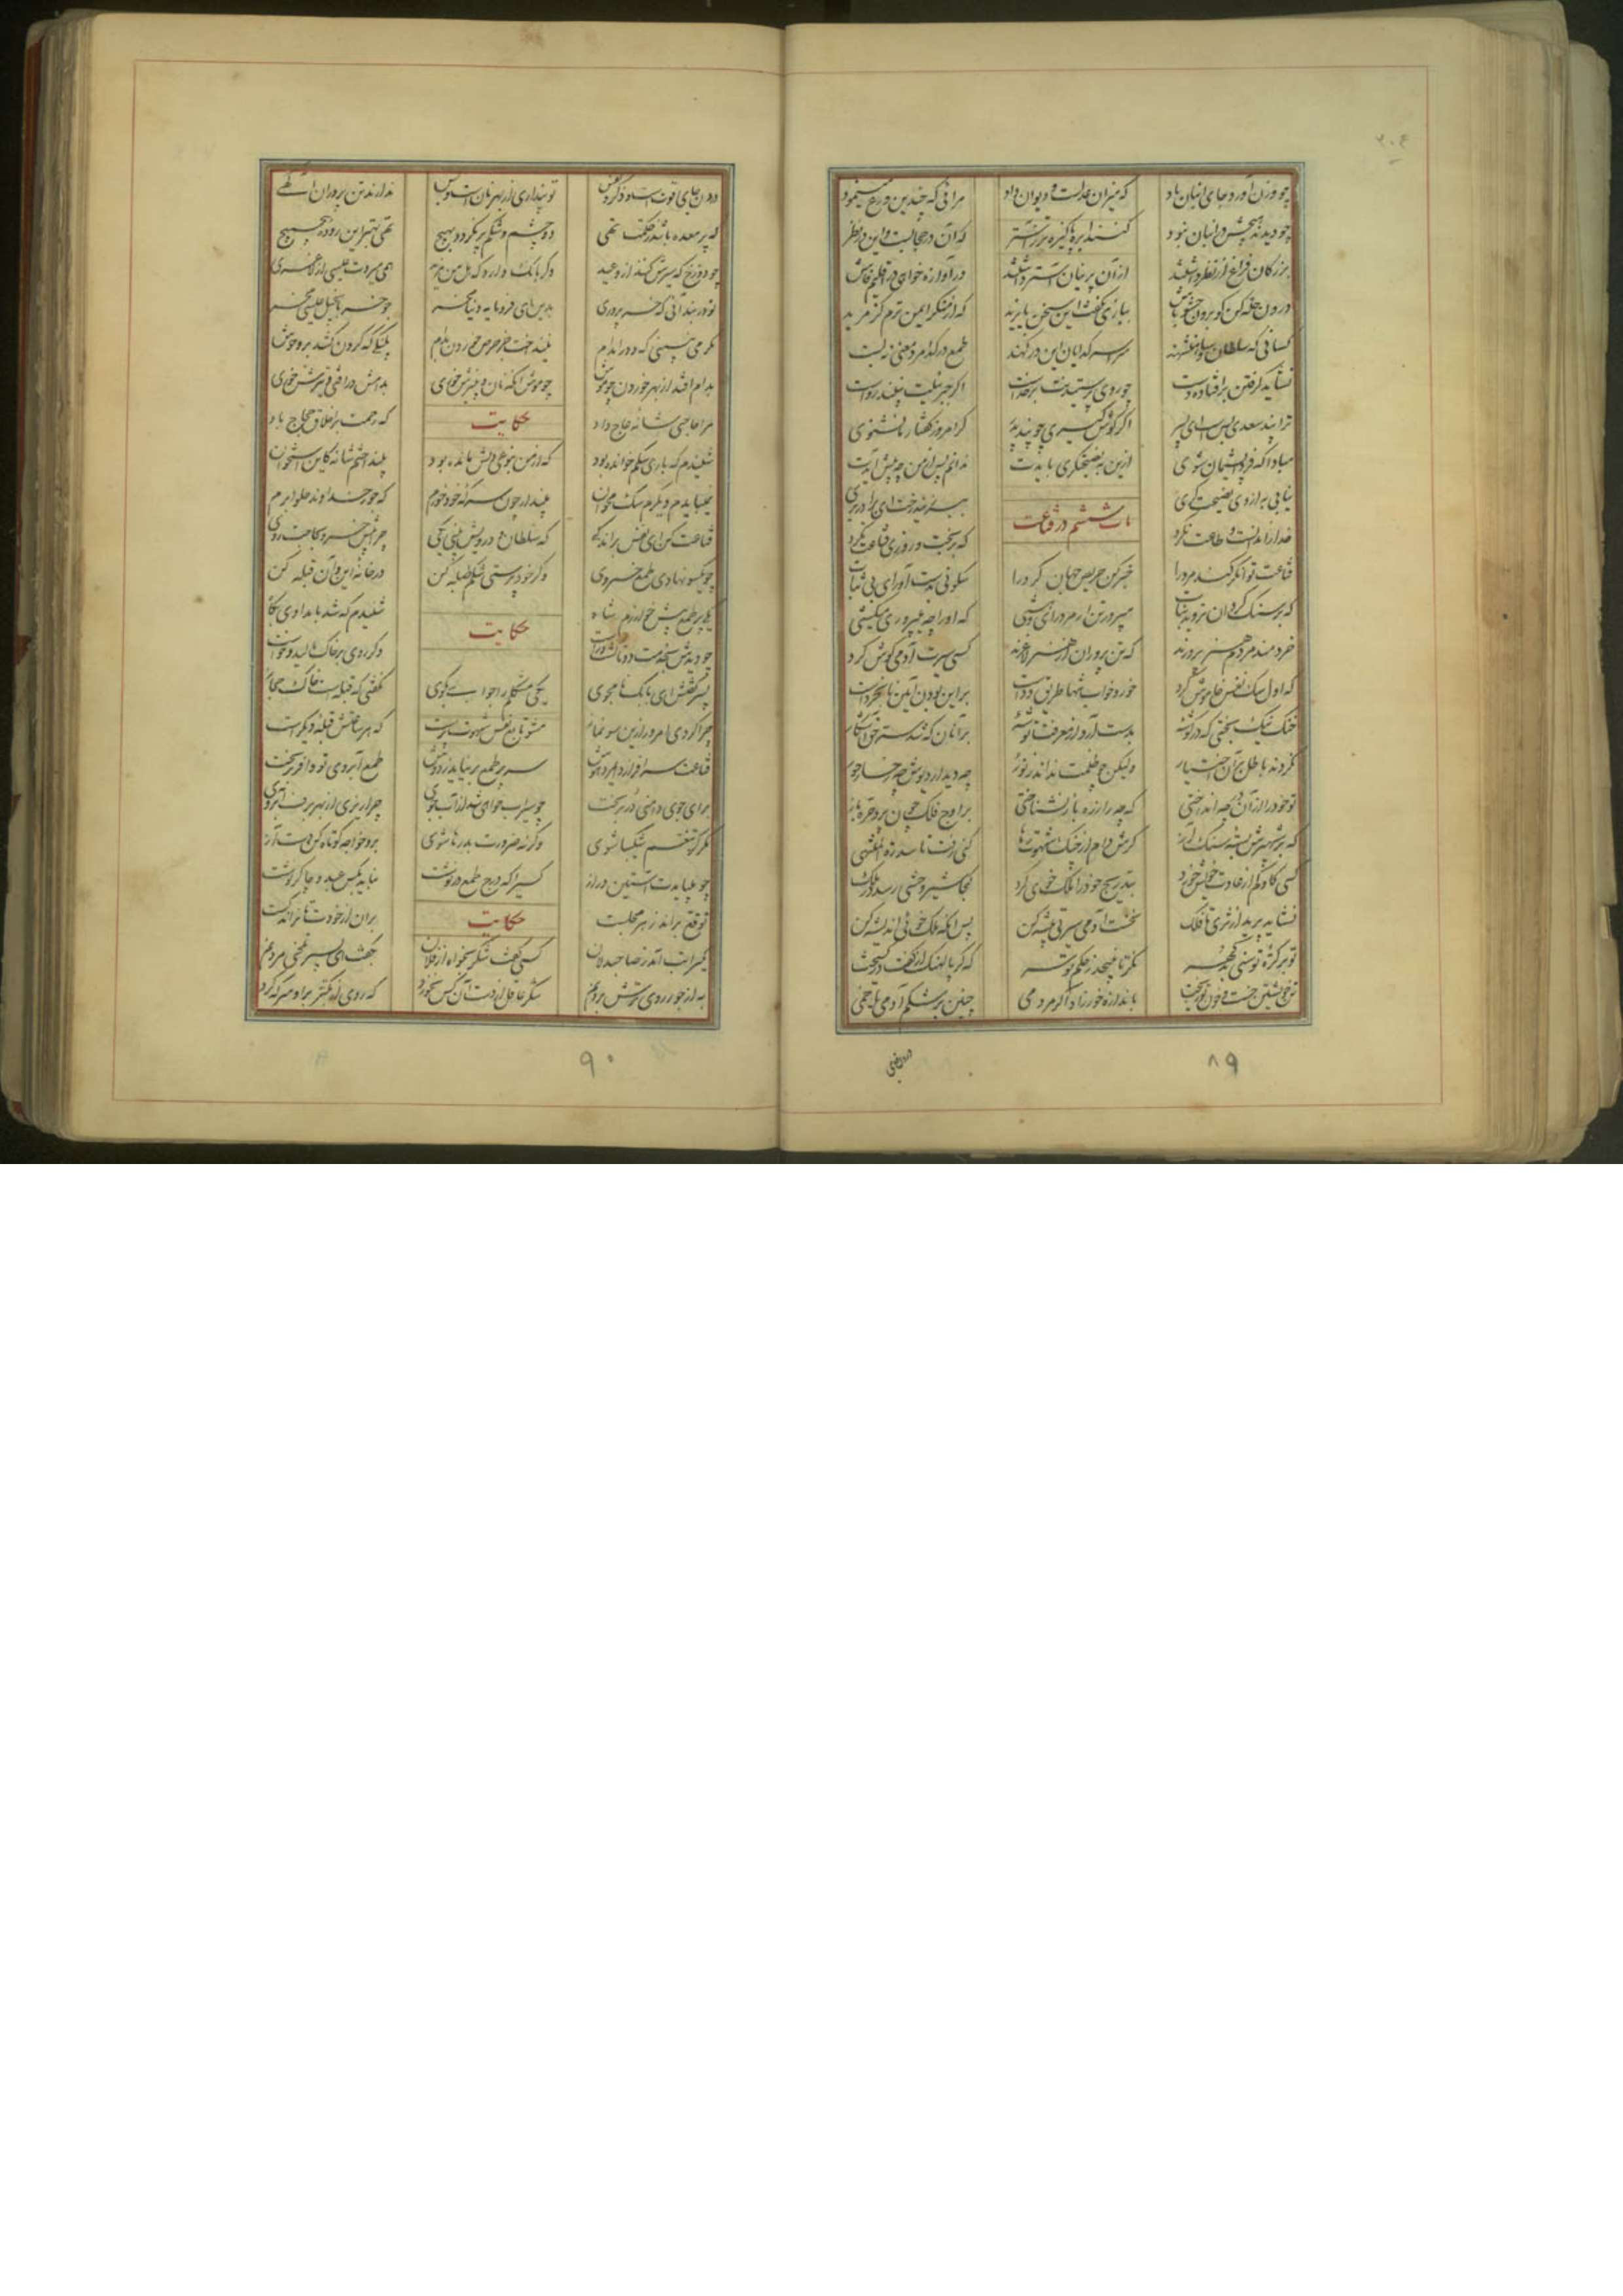 چو وزن آورد جای انبان باد که میزان عدلست و دیوان داد مرائی که چندین ورع مینمود
چو دیدند هیچش در انبان نبود کنند ابره پاکیزه تر ز آستر که آن در حجابست و این در نظر
بزرگان فراغ از نظر داشتند از آن پرنیان آستر داشتند ور آوازه خواهی در اقلیم فاش
درون حله کن گو برون حشو باش ببازی نگفت این سخن بایزید که از منکر ایمن ترم کز مرید
کسانی که سلطان و شاهنشهند سراسر گدایان این درگهند طمع در گدا مرد معنی نبست
نشاید گرفتن بر افتاده دست چو روی پرستیدنت در خداست اگر جبرئیلت نبیند رواست
ترا پند سعدی بس است ای پسر اگر گوش گیری چو پند پدر گر امروز گفتار ما نشنوی
مبادا که فردا پشیمان شوی ازین به نصیحتگری بایدت ندانم پس از من چه پیش آیدت
نیابی به از وی نصیحت گری ای برادر
باب ششم در قناعت
خدا را ندانست و طاعت نکرد که بر بخت و روزی قناعت نکرد
قناعت توانگر کند مرد را خبر کن حریص جهان گرد را سکونی بدست آور ای بی ثبات
که بر سنگ گردان نروید نبات مپرور تن ار مرد رای و هشی که او را چو میپروری میکشی
خردمند مردم هنر پرورند که تن پروران از هنر لاغرند کسی سیرت آدمی گوش کرد
که اول سگ نفس خاموش کرد خور و خواب تنها طریق ددست بر این بودن آیین نابخردست
خنک نیک بختی که در گوشه بدست آرد از معرفت توشه بر آنان که شد سر حق آشکار
نکردند باطل بر آن اختیار ولیکن چو ظلمت نداند ز نور چه دیدار دیوش چه رخسار حور
تو خود را از آن در چه انداختی که چه را ز ره باز نشناختی بر اوج فلک چون پرد جره باز
که بر شهپرش بسته سنگ آز گرش دامن از چنگ شهوت رها کنی رفت تا سدرة المنتهی
کسی کاو کم از عادت خویش خورد بتدریج خود را ملک خوی کرد کجا سیر وحشی رسد در ملک
نشاید پرید از ثری تا فلک نخست آدمی سیرتی پیشه کن پس آنگه ملک خوئی اندیشه کن
تو بر کره توسنی نگر تا نپیچد ز حکم تو سر که گر پالهنگ از کفت در گسیخت
تن خویشتن خست و خون تو ریخت باندازه خور زاد اگر مردمی چنین پر شکم آدمی یا خمی
۸۹
درون جای قوت است و ذکر و نفس تو پنداری از بهر نان است و بس ندارند تن پروران آگهی
که پر معده باشد ز حکمت تهی دو چشم و شکم پر نگردد بهیچ تهی بهتر این روده پیچ پیچ
چو دوزخ که سیرش کنند از وعید دگر بانک دارد که هل من مزید همی میردت عیسی از لاغری
تو در بند آنی که خر پروری بدین ای فرومایه دنیا مخر چو خر بانجیل عیسی مخر
مگر می نبینی که دد را بدام نینداخت جز حرص خوردن بدام پلنگی که گردن کشد بر وحوش
بدام افتد از بهر خوردن چو موش چو موش آنکه نان و پنیرش خوری بدامش در افتی و تیرش خوری
حکایت
مرا حاجی شانه عاج داد که رحمت بر اخلاق حجاج باد
شنیدم که باری سگم خوانده بود که از من بنوعی دلش مانده بود بینداختم شانه کاین استخوان
نمیبایدم دیگرم سگ مخوان مپندار چون سرکه خود خورم که جور خداوند حلوا برم
قناعت کن ای نفس بر اندکی که سلطان و درویش بینی یکی چرا پیش خسرو بحاجت روی
چو یکسو نهادی طمع خسروی وگر خود پرستی شکم طبله کن در خانه این و آن قبله کن
حکایت
یکی پر طمع پیش خوارزم شاه شنیدم که شد بامدادی پگاه
چو دیدش بخدمت دوتا گشت و راست دگر روی بر خاک مالید و خاست
پسر گفتش ای بابک نامجوی یکی مشکلت را جوابی بگوی نگفتی که قبله است خاک حجاز
چرا کردی امروز ازین سو نماز مشو تابع نفس شهوت پرست که هر ساعتش قبله دیگرست
قناعت سر افرازد ای مرد هوش سر پر طمع بر نیاید ز دوش طمع آبروی توقر بریخت
برای دو جو دامنی در بریخت چو سیراب خواهی شد از آب جوی چرا ریزی از بهر برف آبروی
مگر کز تنعم شکیبا شوی وگرنه ضرورت بدرها شوی برو خواجه کوتاه کن دست آز
چو میبایدت آستین دراز کسی را که درج طمع در نوشت نباید بکس عبد و چاکر نوشت
حکایت
توقع براند ز هر مجلست بران از خودت تا نراند کست
یکی را تب آمد ز صاحبدلان کسی گفت شکر بخواه از فلان بگفت ای پسر تلخی مردنم
به از جور روی ترش بردنم شکر عاقل از دست آن کس نخورد که روی از تکبر برو سرکه کرد
۹۰